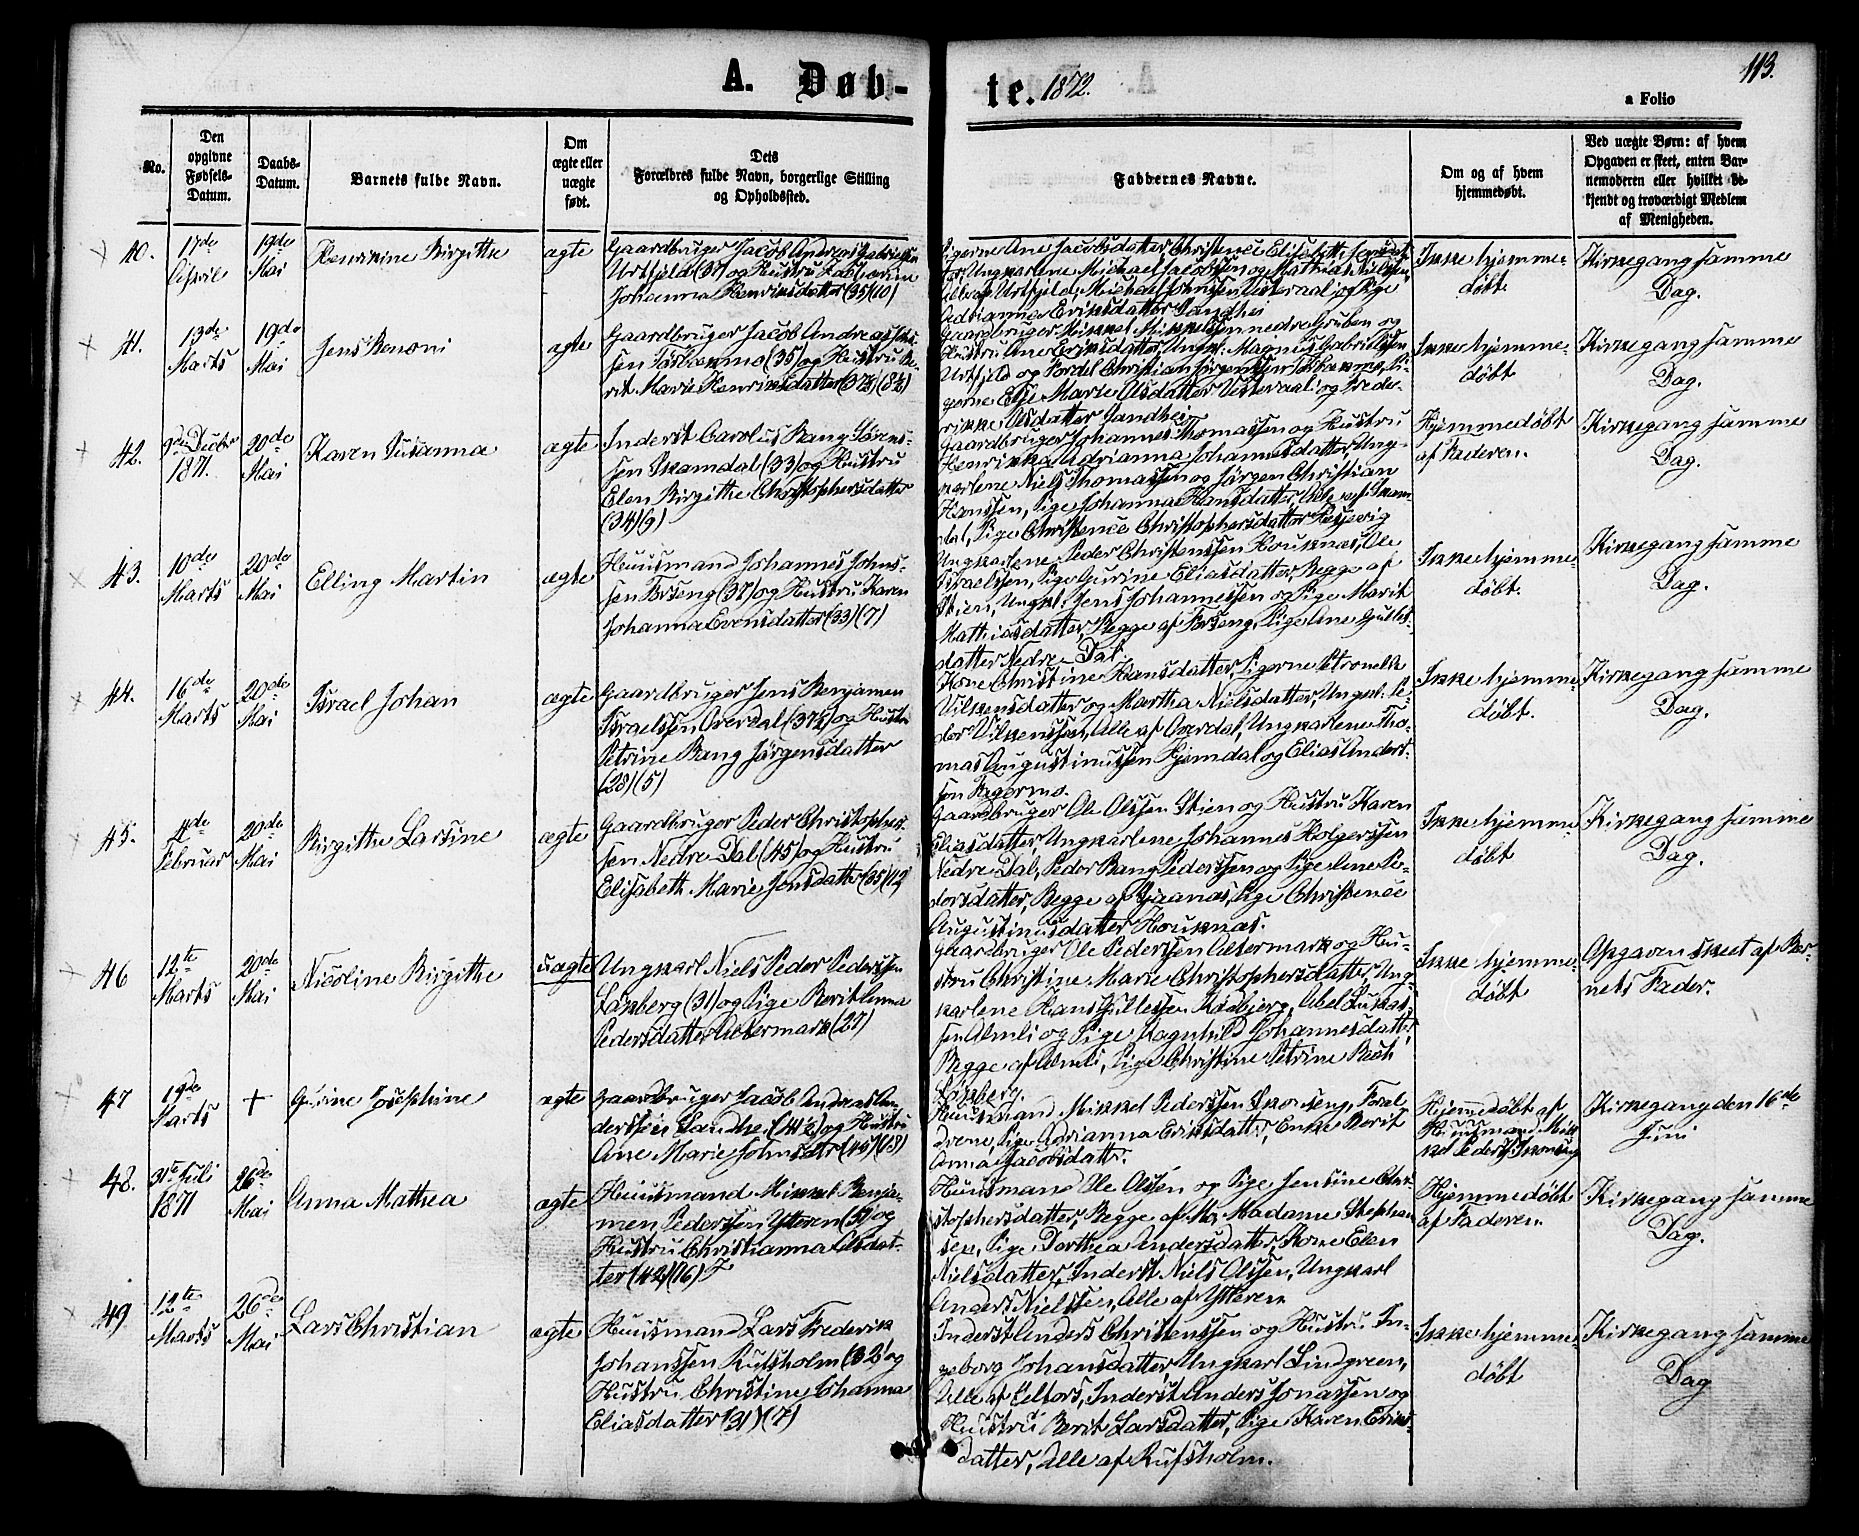 A. Døb-
te. 1872.
113.
a Folio
No.
Den opgivne Fødsels-Datum.
Daabs-Datum.
Barnets fulde Navn.
Om ægte eller uægte født.
Dets
Forældres fulde Navn, borgerlige Stilling
og Opholdssted.
Faddernes Navne.
Om og af hvem
hjemmedøbt.
Ved uægte Børn: af hvem
Opgaven er skeet, enten Bar-
nemoderen eller hvilket be-
kjendt og troværdigt Medlem
af Menigheden.
40.
17de April
19de Mai
Henrikine Birgitte
ægte
Gaardbruger Jacob Andreas Gabrielsen
Urtfjeld (37) og Hustru
Johanna Henriksdatter (35) (10)
Pigerne Ane Jacobsdatter, Christence Elisabeth
Ungkarlene Michael Jacobssen og Mathias Nielssen
Alle af Urtfjeld, Michael Johnssen Vesteraali og Pige
Adrianna Eriksdatter Sandhei
Ikke hjemme-
døbt.
Kirkegang samme
Dag.
41.
13de Marts
19de Mai
Jens Benoni
ægte
Gaardbruger Jacob Andreas
sen (35) og Hustru Be-
rit Marie Henriksdatter (37½) (8½)
Gaardbruger Mikkel Mikkelssen nedre Gruben og
Hustru Ane Eriksdatter, Ungkl. Magnus Gabrielssen
Urtfjeld og Pi-
gerne Else Marie Olsdatter Vesteraali og Frede-
rikke Olsdatter Sandhei
Ikke hjemme-
døbt.
Kirkegang samme
Dag.
42.
9de Decbr 1871.
20de Mai
Karen Susanna
ægte
Inderst Carolus Bang Sørens-
sen Skamdal (33) og Hustru
Elen Birgithe Christophersdatter
(34) (9)
Gaardbruger Johannes Thomassen og Hustru
Henrikka Adrianna Johannesdatter, Ung-
karlene Niels Thomassen og Jörgen Christian
Hanssen, Pige Johanna Hansdatter, Alle af Skam-
dal, Pige Christence Christophersdatter
Hjemmedøbt
af Faderen.
Kirkegang samme
Dag.
43.
10de Marts
20de Mai
Elling Martin
ægte
Huusmand Johannes Johns-
sen Forseng (37) og Hustru Karen
Johanna Evensdatter (33) (7)
Ungkarlene Peder Christenssen Houknæs, Ole
Israelssen, Pige Gurine Eliasdatter, Begge af
Stien, Ungkl. Jens Johannessen og Pige Marit
Mathiasdatter, Begge af Forseng, Pige Ane Gulles-
datter Nedre Dal.
Ikke hjemme-
døbt.
Kirkegang samme
Dag.
44.
16de Marts
20de Mai
Israel Johan
ægte
Gaardbruger Jens Benjamen
Israelssen Overdal (37½) og Hustru
Petrine Bang Jörgensdatter
(28) (5)
Kone Christine Hansdatter, Pigerne Petronelle
Vilkensdatter og Martha Nielsdatter, Ungkl. Pe-
der Vilkenssen, Alle af Overdal, Ungkarlene Tho-
mas Augustinussen Hjemdal og Elias Anders-
sen Kagermo.
Ikke hjemme-
døbt.
Kirkegang samme
Dag.
45.
4de Februar
20de Mai
Birgithe Larsine
ægte
Gaardbruger Peder Christopher-
sen Nedre Dal (45) og Hustru
Elisabeth Marie Jensdatter (35) (12)
Gaardbruger Ole Olssen Stien og Hustru Karen
Eliasdatter, Ungkarlene Johannes Holgerssen
Nedre Dal, Peder Bang Pederssen og Pige Ane Pe-
dersdatter, Begge af Gaanæs, Pige Christence
Augustinusdatter Houknæs.
Ikke hjemme
døbt
Kirkegang samme
Dag.
46
12te Marts
20de Mai
Nicoline Birgitte
uægte
Ungkarl Niels Peder Pederssen
Laxberg (31) og Pige Berit Anna
Pedersdatter Altermark (27)
Gaardbruger Ole Pederssen Altermark og Hu-
stru Christine Marie Christophersdatter, Ung-
karlene Hans Gullessen, Abel Lukas-
sen Almli og Pige Magnhild Johannesdatt.,
Begge af Almli, Pige Christine Petrine Bech
Laxberg.
Ikke hjemme-
døbt
Opgaven skeet af Bar-
nets Fader.
47
19de Marts
+
Gurine Josephine
ægte
Gaardbruger Jacob Andreas An-
derssen Sandhei (41½) og Hustru
Ane Marie Johnsdtr (45) (18)
Huusmand Mikkel Pederssen Skonseng, Foræl-
drene, Pige Adrianna Eriksdatt., Enke Berit
Anna Jacobsdatt.
Hjemmedøbt af
Huusmand Mik-
kel Peders. Skonseng
Kirkegang den 16de
Juni
48.
31te Juli 1871
26de Mai
Anna Mathea
ægte
Huusmand Mikkel Benja-
men Pederssen Ytteren (37) og
Hustru Christianna Olsdat-
ter (42) (16)
Huusmand Ole Olssen og Pige Jensine Chri-
stophersdatter, Begge af Mo, Madame Stephan-
sen, Pige Dorthea Andersdatter, Kone Elen
Nielsdatter, Inderst Niels Olssen, Ungkarl
Anders Nielssen, Alle af Ytteren.
Hjemmedøbt
af Faderen.
Kirkegang samme
Dag.
49
12te Marts
26de Mai
Lars Christian
ægte
Huusmand Lars Frederik
Johanssen Rufsholm (32) og
Hustru Christine Johanna
Eliasdatter (31) (7)
Inderst Anders Christenssen og Hustru In-
geborg Johansdatter, Ungkarl Lindgreen,
Alle af Selfors, Inderst Anders Jonassen og
Hustru Berit Larsdatter, Pige Karen Eriks-
datter, Alle af Rufsholm.
Ikke hjemme-
døbt
Kirkegang samme
Dag